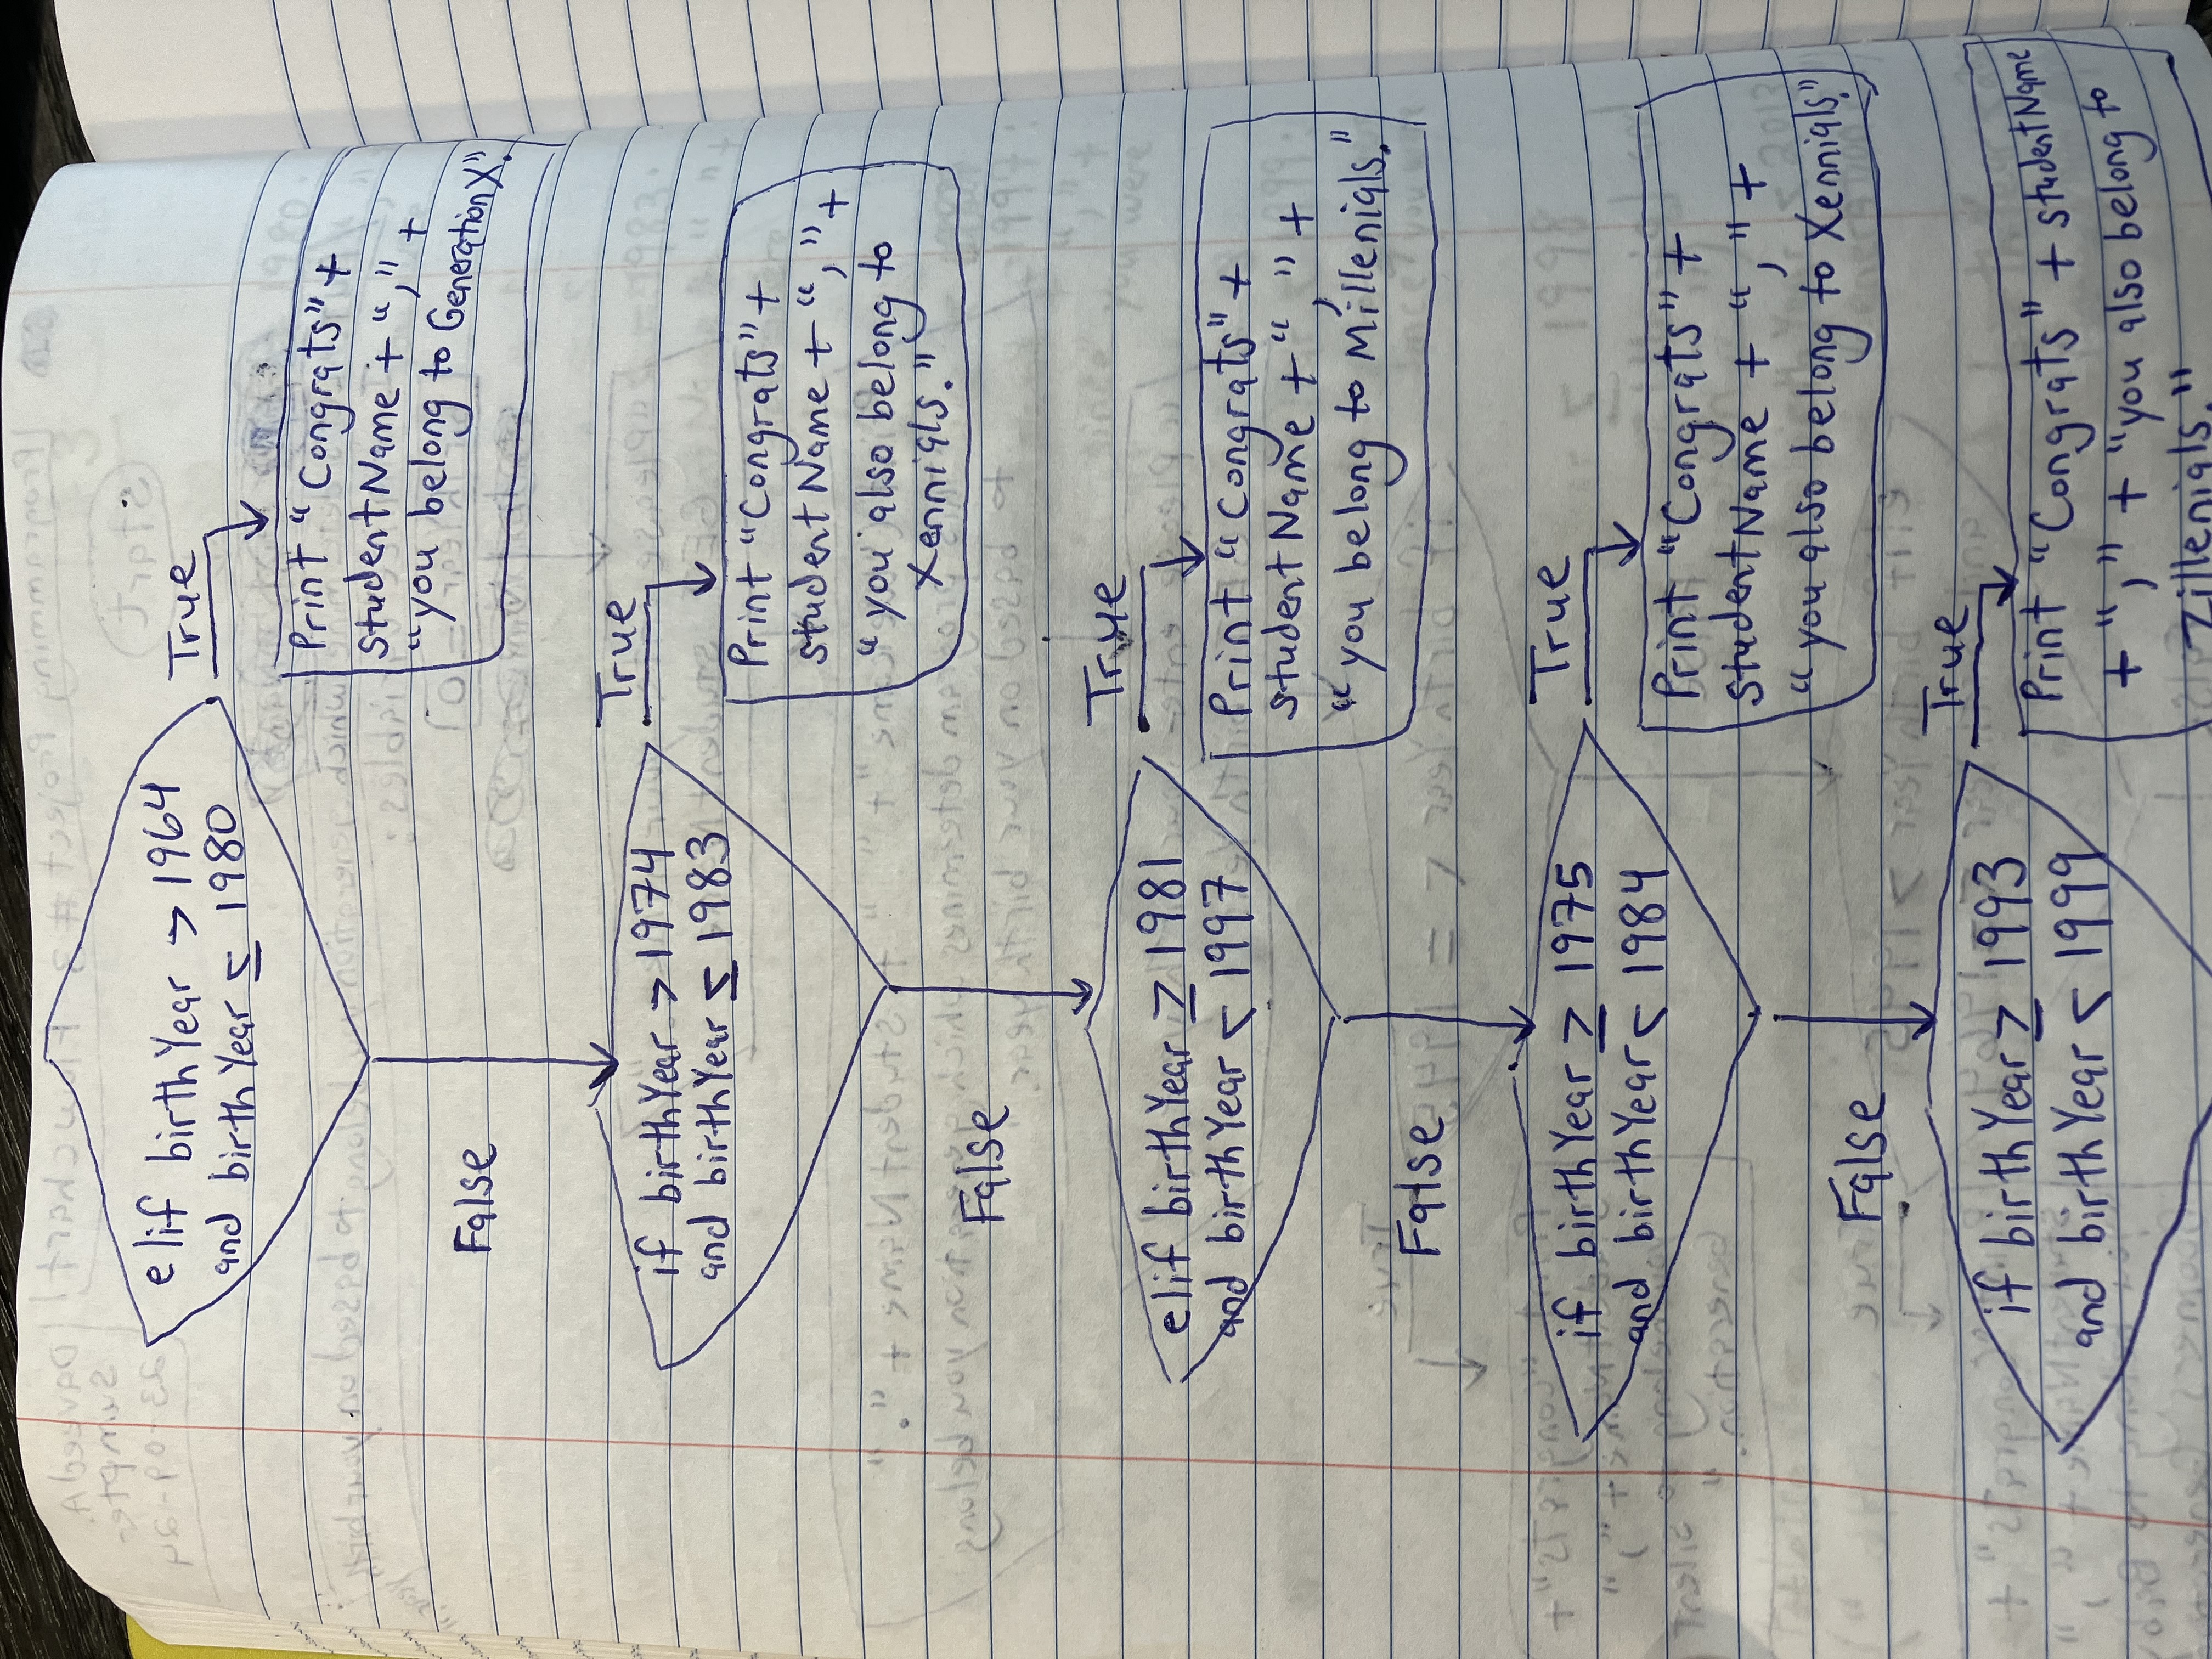 elif birthYear > 1964
and birthYear ≤ 1980
True
Print "Congrats" +
studentName + "," +
"you belong to Generation X".
False
if birthYear > 1974
and birthYear ≤ 1983
True
Print "Congrats" +
studentName + "," +
"you also belong to
Xennials."
False
elif birthYear ≥ 1981
and birthYear < 1997
True
Print "Congrats" +
studentName + "," +
"you belong to Millenials."
False
if birthYear ≥ 1975
and birthYear < 1984
True
Print "Congrats" +
studentName + "," +
"you also belong to Xennials."
False
if birthYear ≥ 1993
and birthYear < 1999
True
Print "Congrats" + studentName
+ "," + "you also belong to
Zillenials."